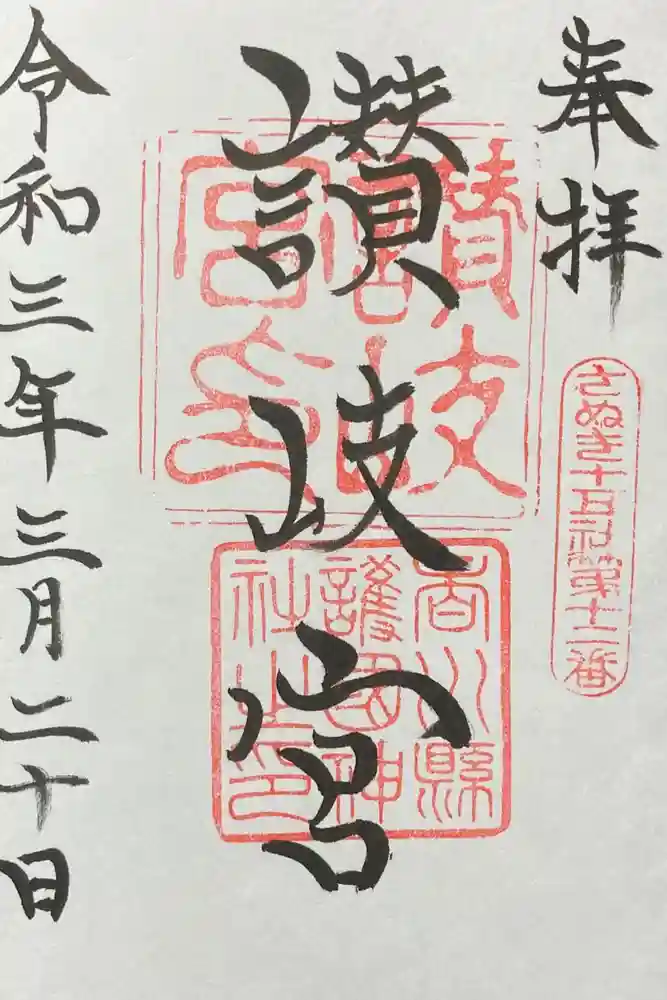 奉拝
さぬき十五社第十二番
讃岐宮
讃岐宮之印
香川縣護國神社之印
令和三年三月二十日